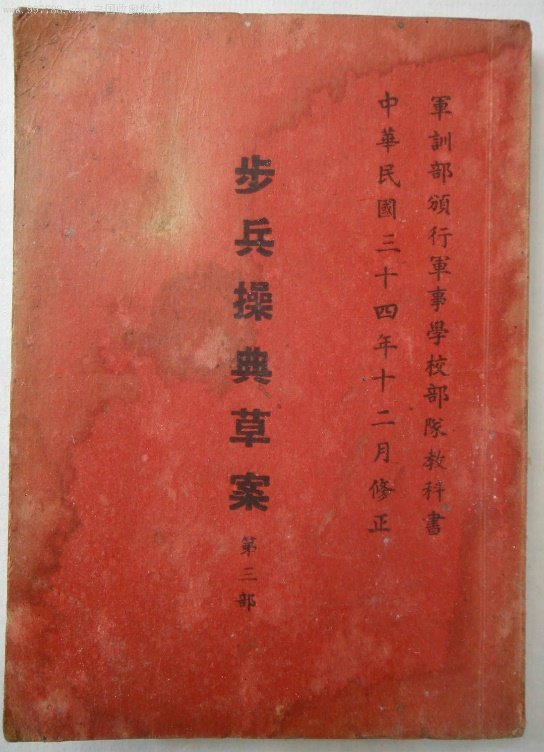 軍訓部頒行軍事學校部隊教科書
中華民國三十四年十二月修正
步兵操典草案
第三部